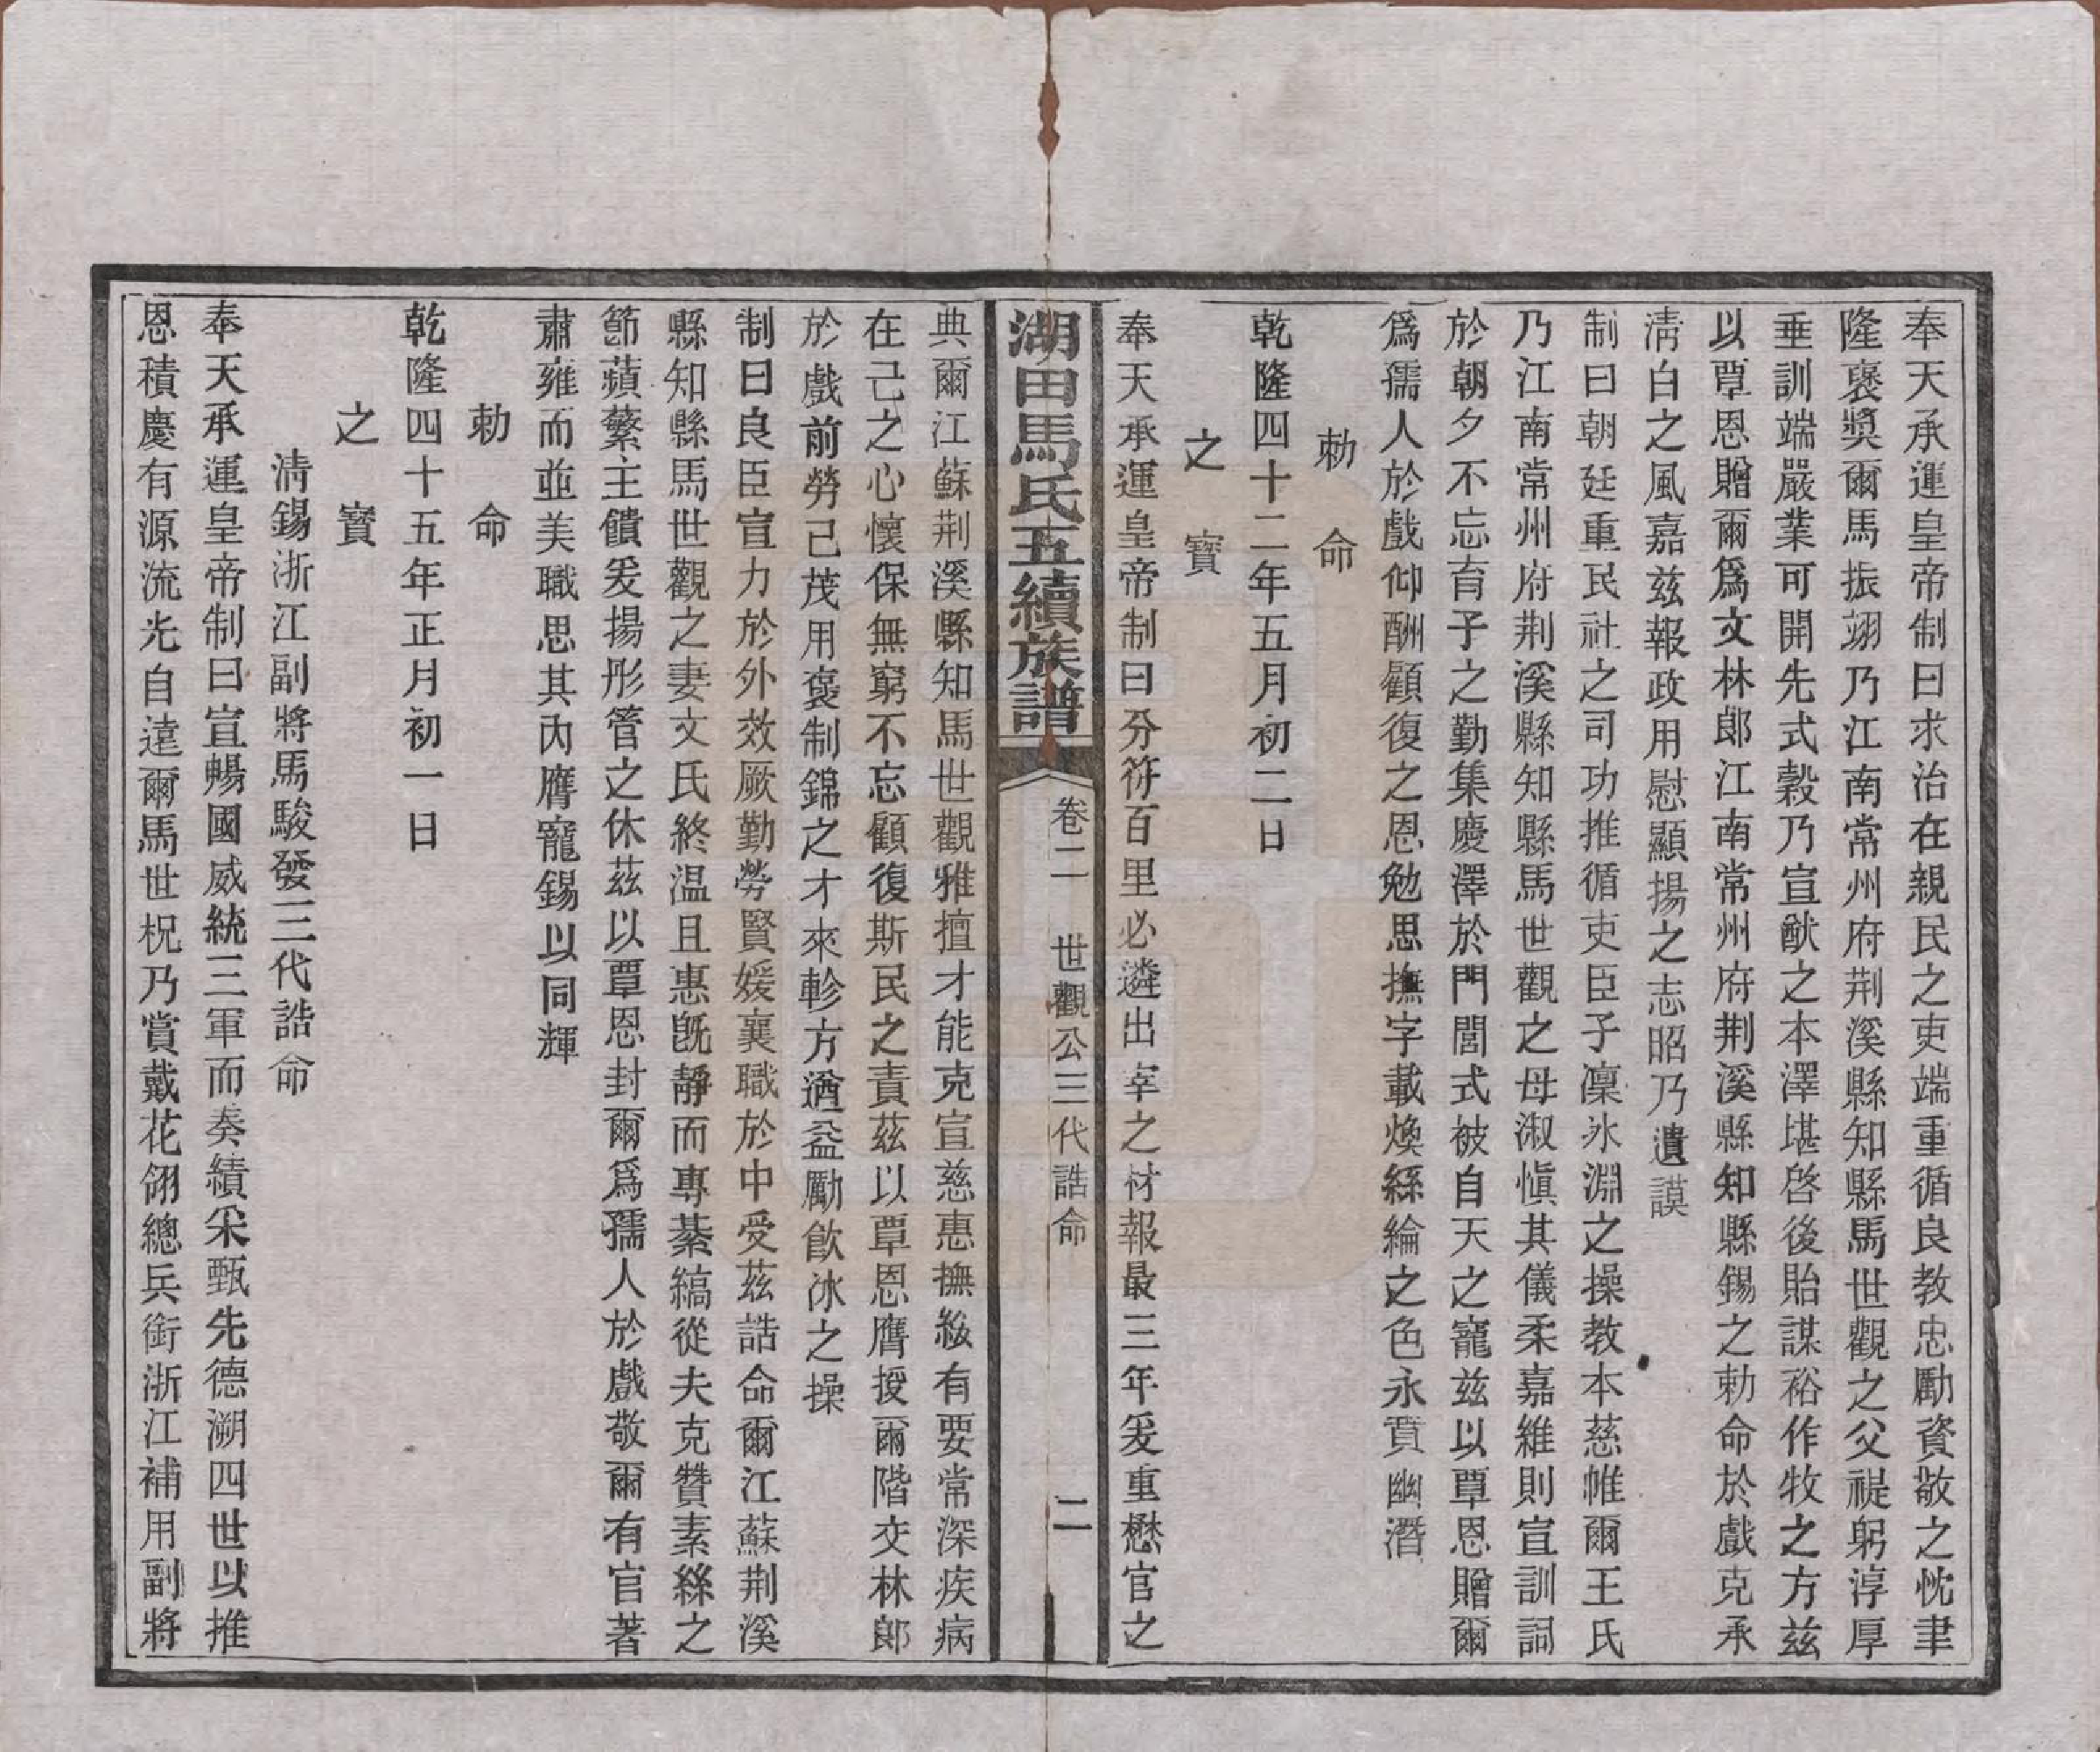 奉天承運皇帝制曰求治在親民之吏端重循良教忠勵資敬之忱聿
隆褒獎爾馬振翊乃江南常州府荆溪縣知縣馬世觀之父禔躬淳厚
垂訓端嚴業可開先式穀乃宣猷之本澤堪啓後貽謀裕作牧之方兹
以覃恩贈爾爲文林郎江南常州府荆溪縣知縣錫之勅命於戲克承
清白之風嘉兹報政用慰顯揚之志昭乃遺謨
制曰朝廷重民社之司功推循吏臣子凜氷淵之操教本慈帷爾王氏
乃江南常州府荆溪縣知縣馬世觀之母淑愼其儀柔嘉維則宣訓詞
於朝夕不忘育子之勤集慶澤於門閭式被自天之寵兹以覃恩贈爾
爲孺人於戲仰酬顧復之恩勉思撫字載煥絲綸之色永賁幽潛
勅命
乾隆四十二年五月初二日
之寳
奉天承運皇帝制曰分符百里必遴出宰之材報最三年爰重懋官之
湖田馬氏五續族譜
卷二 世觀公三代誥命 二
典爾江蘇荆溪縣知馬世觀雅擅才能克宣慈惠撫綏有要常深疾病
在己之心懷保無窮不忘顧復斯民之責茲以覃恩膺授爾階文林郎
於戲前勞己茂用褒制錦之才來軫方遒益勵飮冰之操
制曰良臣宣力於外效厥勤勞賢媛襄職於中受茲誥命爾江蘇荆溪
縣知縣馬世觀之妻文氏終温且惠旣靜而專綦縞從夫克贊素絲之
節蘋蘩主饋爰揚彤管之休茲以覃恩封爾爲孺人於戲敬爾有官著
肅雍而並美職思其內膺寵錫以同輝
勅命
乾隆四十五年正月初一日
之寳
淸錫浙江副將馬駿發三代誥命
奉天承運皇帝制曰宣暢國威統三軍而奏績釆甄先德溯四世以推
恩積慶有源流光自遠爾馬世柷乃賞戴花翎總兵銜浙江補用副將